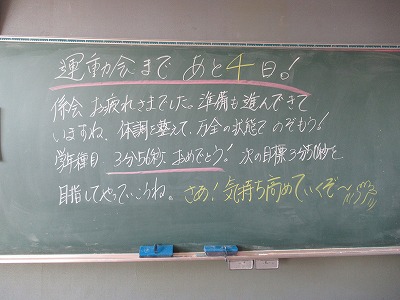 運動会まで あと4日!
係会 お疲れさまでした。準備も進んできて
いますね。体調を整えて、万全の状態で のぞもう!
学年種目 3分56秒 おめでとう! 次の目標3分50秒を
目指してやっていこうね。さあ!気持ち高めていくぞ〜